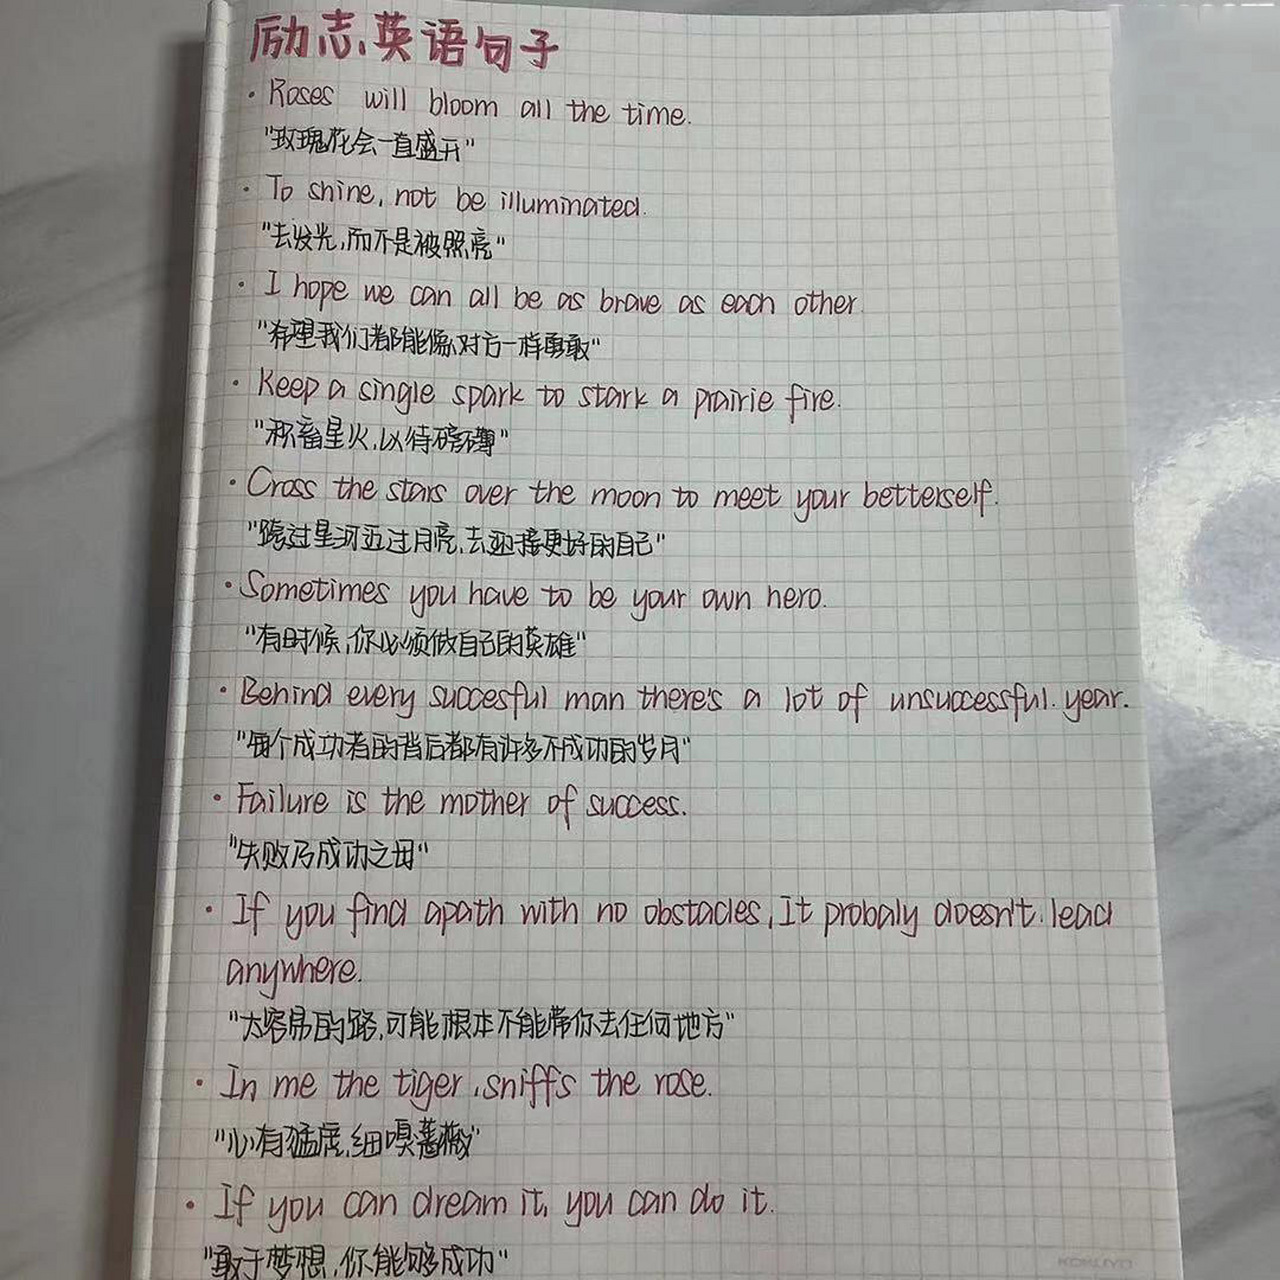 励志英语句子
· Roses will bloom all the time.
"玫瑰花会一直盛开"
· To shine, not be illuminated.
"去发光,而不是被照亮"
· I hope we can all be as brave as each other.
"希望我们都能像对方一样勇敢"
· Keep a single spark to stark a prairie fire.
"积畜星火,以待磅礴"
· Cross the stars over the moon to meet your betterself.
"跨过星河迈过月亮,去迎接更好的自己"
· Sometimes you have to be your own hero.
"有时候,你必须做自己的英雄"
· Behind every succesful man there's a lot of unsuccessful. year.
"每个成功者的背后都有许多不成功的岁月"
· Failure is the mother of success.
"失败乃成功之母"
· If you find apath with no obstacles, It probaly doesn't. lead
anywhere.
"太容易的路,可能根本不能带你去任何地方"
· In me the tiger, sniffs the rose.
"心有猛虎,细嗅蔷薇"
· If you can dream it, you can do it.
"敢于梦想,你能够成功"
KOKUYO